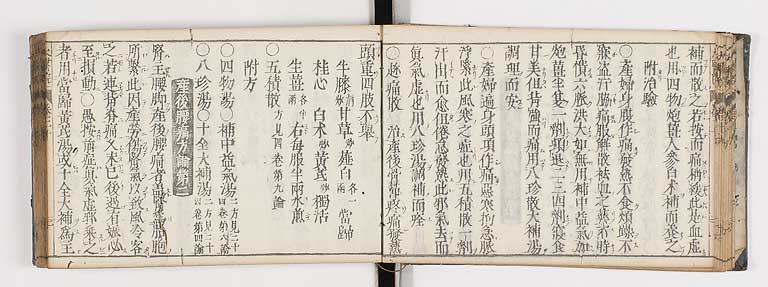 補而散之若按而痛稍緩此是血虛
也用四物炮薑人參白朮補而養之
附治驗
○產婦身腹作痛發熱不食煩躁不
寐盗汗脇痛服解散祛血之藥不時
昏憒六脉洪大如無用補中益氣加
炮薑半夏一劑頓退二三四劑寢食
甘美但背強而痛用八珍散大補湯
調理而安
○產婦遍身頭項作痛惡寒拘急脉
浮緊此風寒之症也用五積散一劑
汗出而愈但倦怠發熱此邪氣去而
眞氣虛也用八珍湯調補而痊
○趂痛散 治產後骨節疼痛發熱
頭重四肢不舉
牛膝 甘草炒 薤白各一兩 當歸
桂心 白朮炒 黃芪炒 獨活
生薑各半兩 右每服半兩水煎
○五積散 方見四卷第九論
附方
○四物湯 ○補中益氣湯 二方見二十四卷第六論
○八珍湯 ○十全大補湯 二方見二十四卷第四論
產後腰痛方論第三
腎主腰脚產後腰痛者
所繫此因產勞傷腎氣以致風冷客
之若連背脊痛久未已後遇有娠必
至損動○愚按前症眞氣虛邪乘之
者用當歸黃芪湯或十全大補爲主